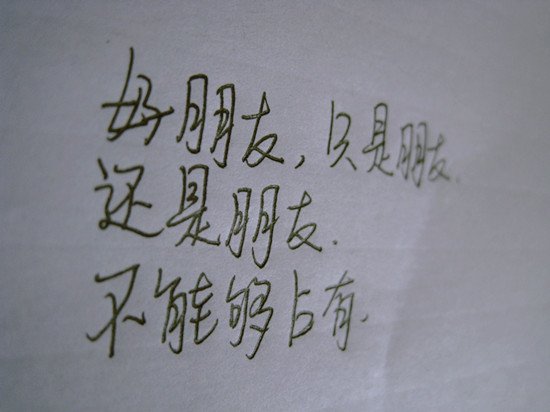 好朋友，只是朋友.
还是朋友.
不能够占有.